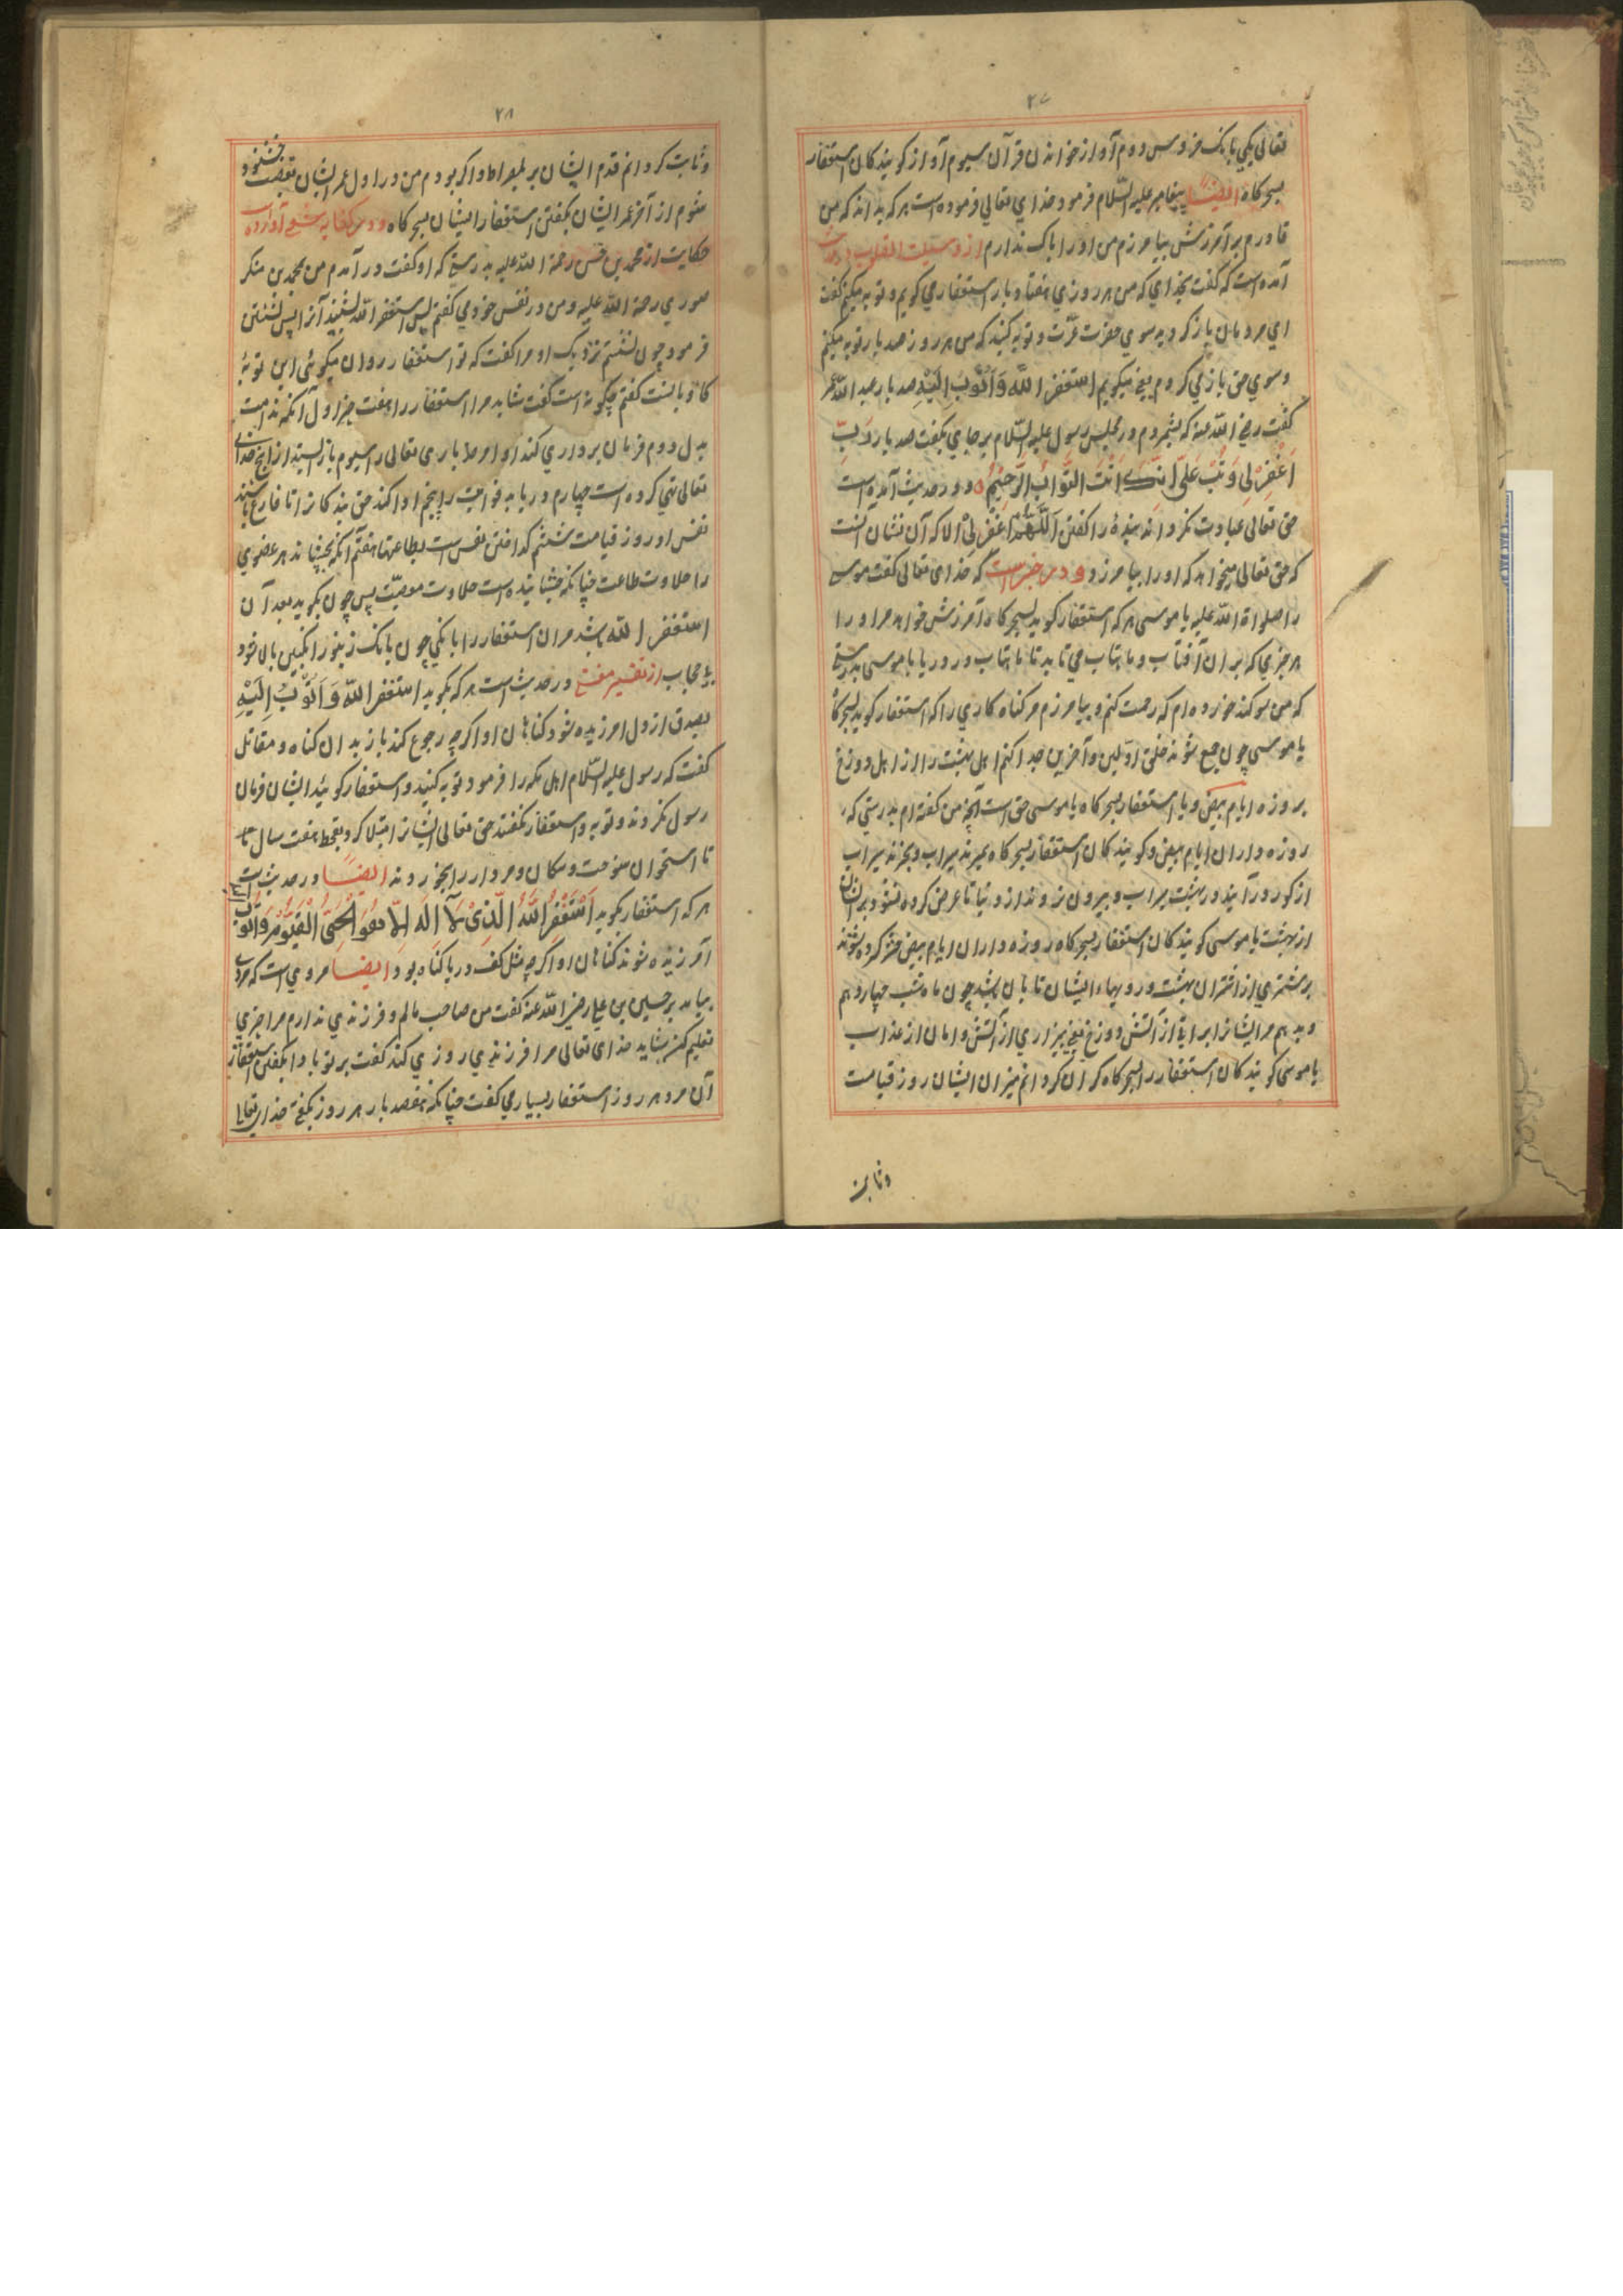 ۲۷
تعالی یکی بانک خروس دوم آواز خواندن قرآن سیوم آواز کویندکان استغفار
بسحرکاه ایضاً پیغامبر علیه السّلام فرمود خدای تعالی فرموده است هرکه بداند که من
قادرم بر آمرزش بیامرزم من او را باک ندارم از وسیلت القلوب
آمده است که کفت بخدای که من هر روزی هفتاد بار استغفار می کویم و توبه میکنم کفت
ای مردمان باز کردید سوی حضرت عزّت و توبه کنید که من هر روز صد بار توبه میکنم
و سوی حق باز می کردم یعنی میکویم استغفر اللّه وَاَتُوبُ اِلَیْهِ صد بار عبد اللّه عمر
کفت رضی اللّه عنه که بشمردم در مجلس رسول علیه السّلام بر جای بکفت صد بار رَبِّ
اَغْفِرْلِی وَتُبْ عَلَیَّ اِنَّکَ اَنْتَ التَّوَّابُ الرَّحِیْمُ و در حدیث آمده است
حق تعالی عبادت نکرداند بندهٔ را کفتن اَللّٰهُمَّ اغْفِرْلِیْ الا که آن نشان آنست
که حق تعالی میخواهد که او را بیامرزد و در خبر است که خدای تعالی کفت موسی
را صلواة اللّه علیه یا موسی هرکه استغفار کوید بسحرکاه آمرزش خواهد مر او را
هر چیزی که بران آفتاب و ماهتاب می تابد تا ماهتاب و در دریا یا موسی بدرستی
که من سوکند خورده ام که رحمت کنم و بیامرزم هر کناه کاری را که استغفار کوید بسحرکاه
یا موسی چون جمع شوند خلق اوّلین و آخرین جدا کنم اهل بهشت را از اهل دوزخ
بروزه ایام بیض و با استغفار بسحرکاه یا موسی حق است آنچه من کفته ام بدرستی که
روزه داران ایام بیض و کویندکان استغفار بسحرکاه بمیرند سیراب و بخیزند سیراب
از کور و در آیند در بهشت سیراب و بیرون نروند از دنیا تا عرض کرده نشود بر ایشان
از بهشت یا موسی کویندکان استغفار بسحرکاه و روزه داران ایام بیض حشر کرده شوند
بر شتری از اشتران بهشت و رویهاء ایشان تابان باشد چون ماه شب چهاردهم
و بدهم مر ایشانرا براة از آتش دوزخ یعنی بیزاری از آتش و امان از عذاب
یا موسی کویندکان استغفار را بسحرکاه کران کردانم میزان ایشان روز قیامت
وثابت
۲۸
وثابت کردانم قدم ایشان بر پلصراط و اکر بودم من در اول عمر ایشان بغضب خشنود
شوم از آخر عمر ایشان بکفتن استغفار ایشان بسحرکاه و در کفایه شعبی آورده
حکایت از محمد بن حسن رحمة اللّه علیه بدرستی که او کفت در آمدم من بمحمد بن منکر
صوری رحمة اللّه علیه و من در نفس خود می کفتم پس استغفر اللّه بشنید آنرا پس نشستن
فرمود چون نشستم نزدیک او مرا کفت که تو استغفار روان میکوئی این توبهٔ
کاذبانست کفتم چکونه است کفت شاید مر استغفار را هفت چیز اول آنکه ندامت
بدل دوم فرمان برداری کند اوامر باری تعالی را سیوم باز ایستد از آنچه خدای
تعالی نهی کرده است چهارم دریابد فوایت را پنجم ادا کند حق بندکانرا تا فارغ باشد
نفس او روز قیامت ششم کداختن نفس است بطاعتها هفتم آنکه بچشاند هر عضوی
را حلاوت طاعت چنانکه چشانیده است حلاوت معصیّت پس چون بکوید بعد آن
استغفر اللّه باشد مر آن استغفار را بانکی چون بانک زنبور انکبین بالا شود
بی حجاب از تفسیر مغنی در حدیث است هرکه بکوید استغفر اللّه وَاَتُوْبُ اِلَیْهِ
بصدق از دل امرزیده شود کناهان او اکرچه رجوع کند باز بدان کناه و مقاتل
کفت که رسول علیه السّلام اهل مکه را فرمود توبه کنید و استغفار کوئید ایشان فرمان
رسول نکردند و توبه و استغفار نکفتند حق تعالی ایشانرا مبتلا کرد بقحط هفت سال تا
تا استخوان سوخت و سکان و مردار را بخوردند ایضاً در حدیث است
هرکه استغفار بکوید اَسْتَغْفِرُ اللّٰهَ الَّذِیْ لَآ اِلٰهَ اِلَّا هُوَ الْحَیُّ الْقَیُّوْمُ وَاَتُوْبُ الیه
آمرزیده شوند کناهان او اکرچه مثل کف دریا کناه بود و ایضا مروی است که مردی
بیامد بر حسین بن علی رضی اللّه عنه کفت من صاحب مالم و فرزندی ندارم مرا چیزی
تعلیم کن شاید خدای تعالی مرا فرزندی روزی کند کفت بر تو بادا بکفتن استغفار
آن مرد هر روز استغفار بسیار می کفت چنانکه هفصد بار هر روز بکفتی خدای تعالی